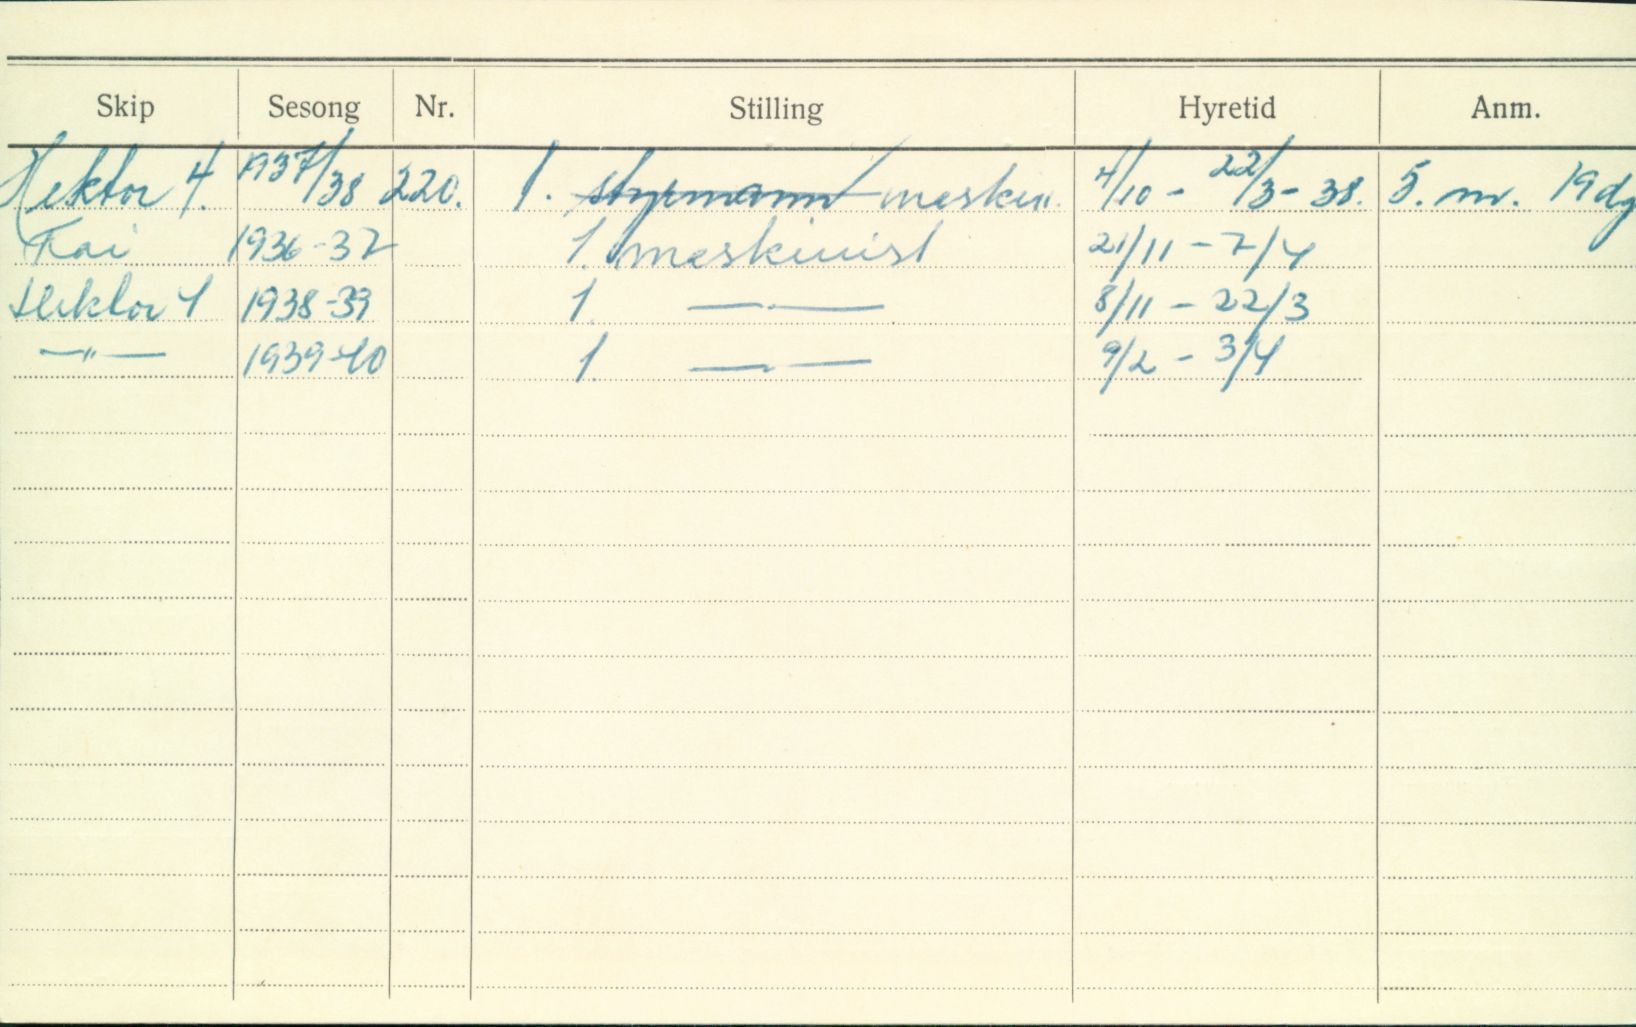 Skip Sesong Nr. Stilling Hyretid Anm.
Hektor 4. 1937/38 220. 1. styrmann maskin. 4/10 - 22/3 - 38. 5. m. 19 dg
Kai 1936-37 1. maskinist 21/11 - 7/4
Hektor 4 1938-39 1. —"— 8/11 - 22/3
—"— 1939-40 1. —"— 9/2 - 3/4